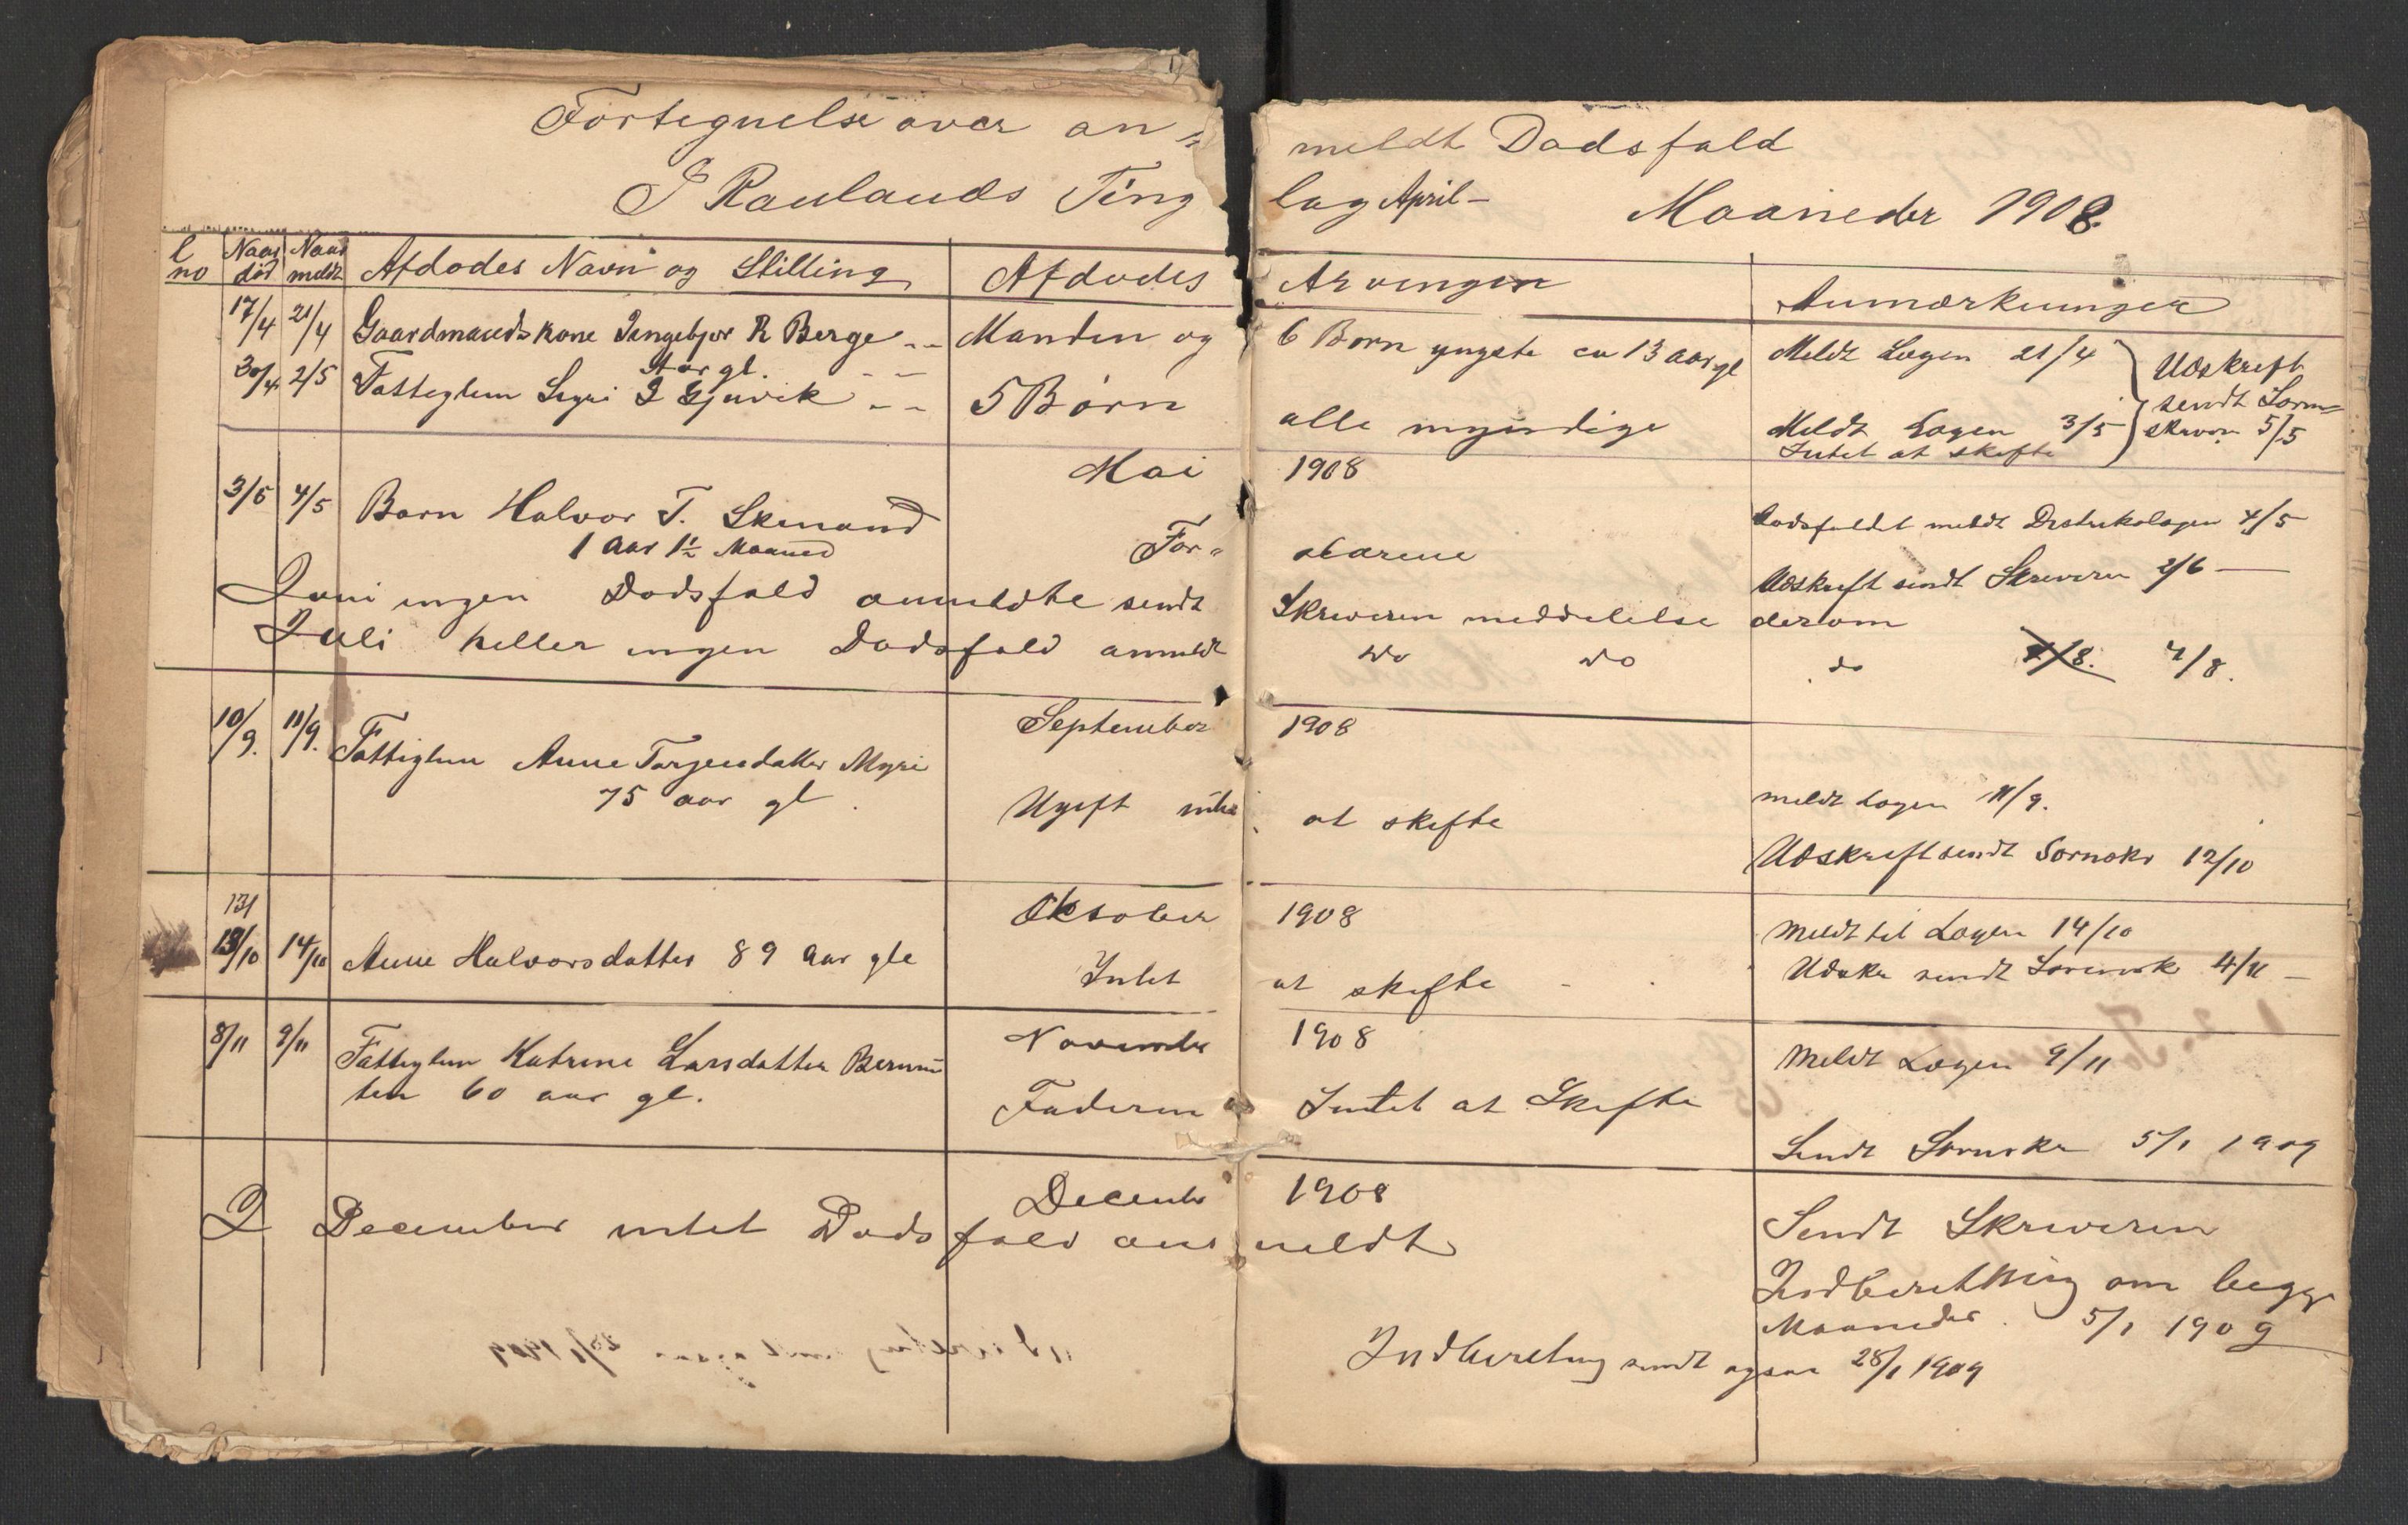 Fortegnelse over an= meldt Dødsfald
I Raulands Ting lag April - Maaneder 1908.
L no | Naar død | Naar meldt | Afdødes Navn og Stilling | Afdødes Arvinger | Anmærkninger
17/4 21/4 Gaardmandskone Ingebjør R Berge -- Manden og 6 Børn yngste ca 13 aar gl Meldt Lægen 21/4 Udskrift
aar gl. -- sendt Soren=
30/4 2/5 Fattiglem Sigri Gjuvik -- 5 Børn alle myndige Meldt Lægen 3/5 skriveren 5/5
Intet at skifte
Mai 1908
3/5 4/5 Barn Halvor T. Skinand Dødsfaldet meldt Distrikslægen 4/5
1 Aar 1½ Maaned For= ældrene
Udskrift sendt Skriveren 2/6 —
Juni ingen Dødsfald anmeldte sendt Skriveren meddelelse derom
Juli heller ingen Dødsfald anmeldt do do do 7/8. 4/8.
September 1908
10/9. 11/9. Fattiglem Anne Torjeusdatter Myri
75 aar gl. Ugift intet at skifte meldt Lægen 11/9.
Udskrift sendt Sornskr 12/10
131 Oktober 1908 Meldt til Lægen 14/10
13/10 14/10 Anne Halvorsdatter 89 Aar gle Intet at skifte - Udskr sendt Sorensk 4/11 -
November 1908
8/11 9/11 Fattiglem Katrine Larsdatter Bernun= Meldt Lægen 9/11
ten 60 aar gl. Faderen Intet at Skifte
Sendt Sornskr 5/1 1909
Decembr 1908
I December intet Dødsfald anmeldt Sendt Skriveren
Indberetning om begge
Maaneder. 5/1 1909
Indberetning sendt ogsaa 28/1 1909